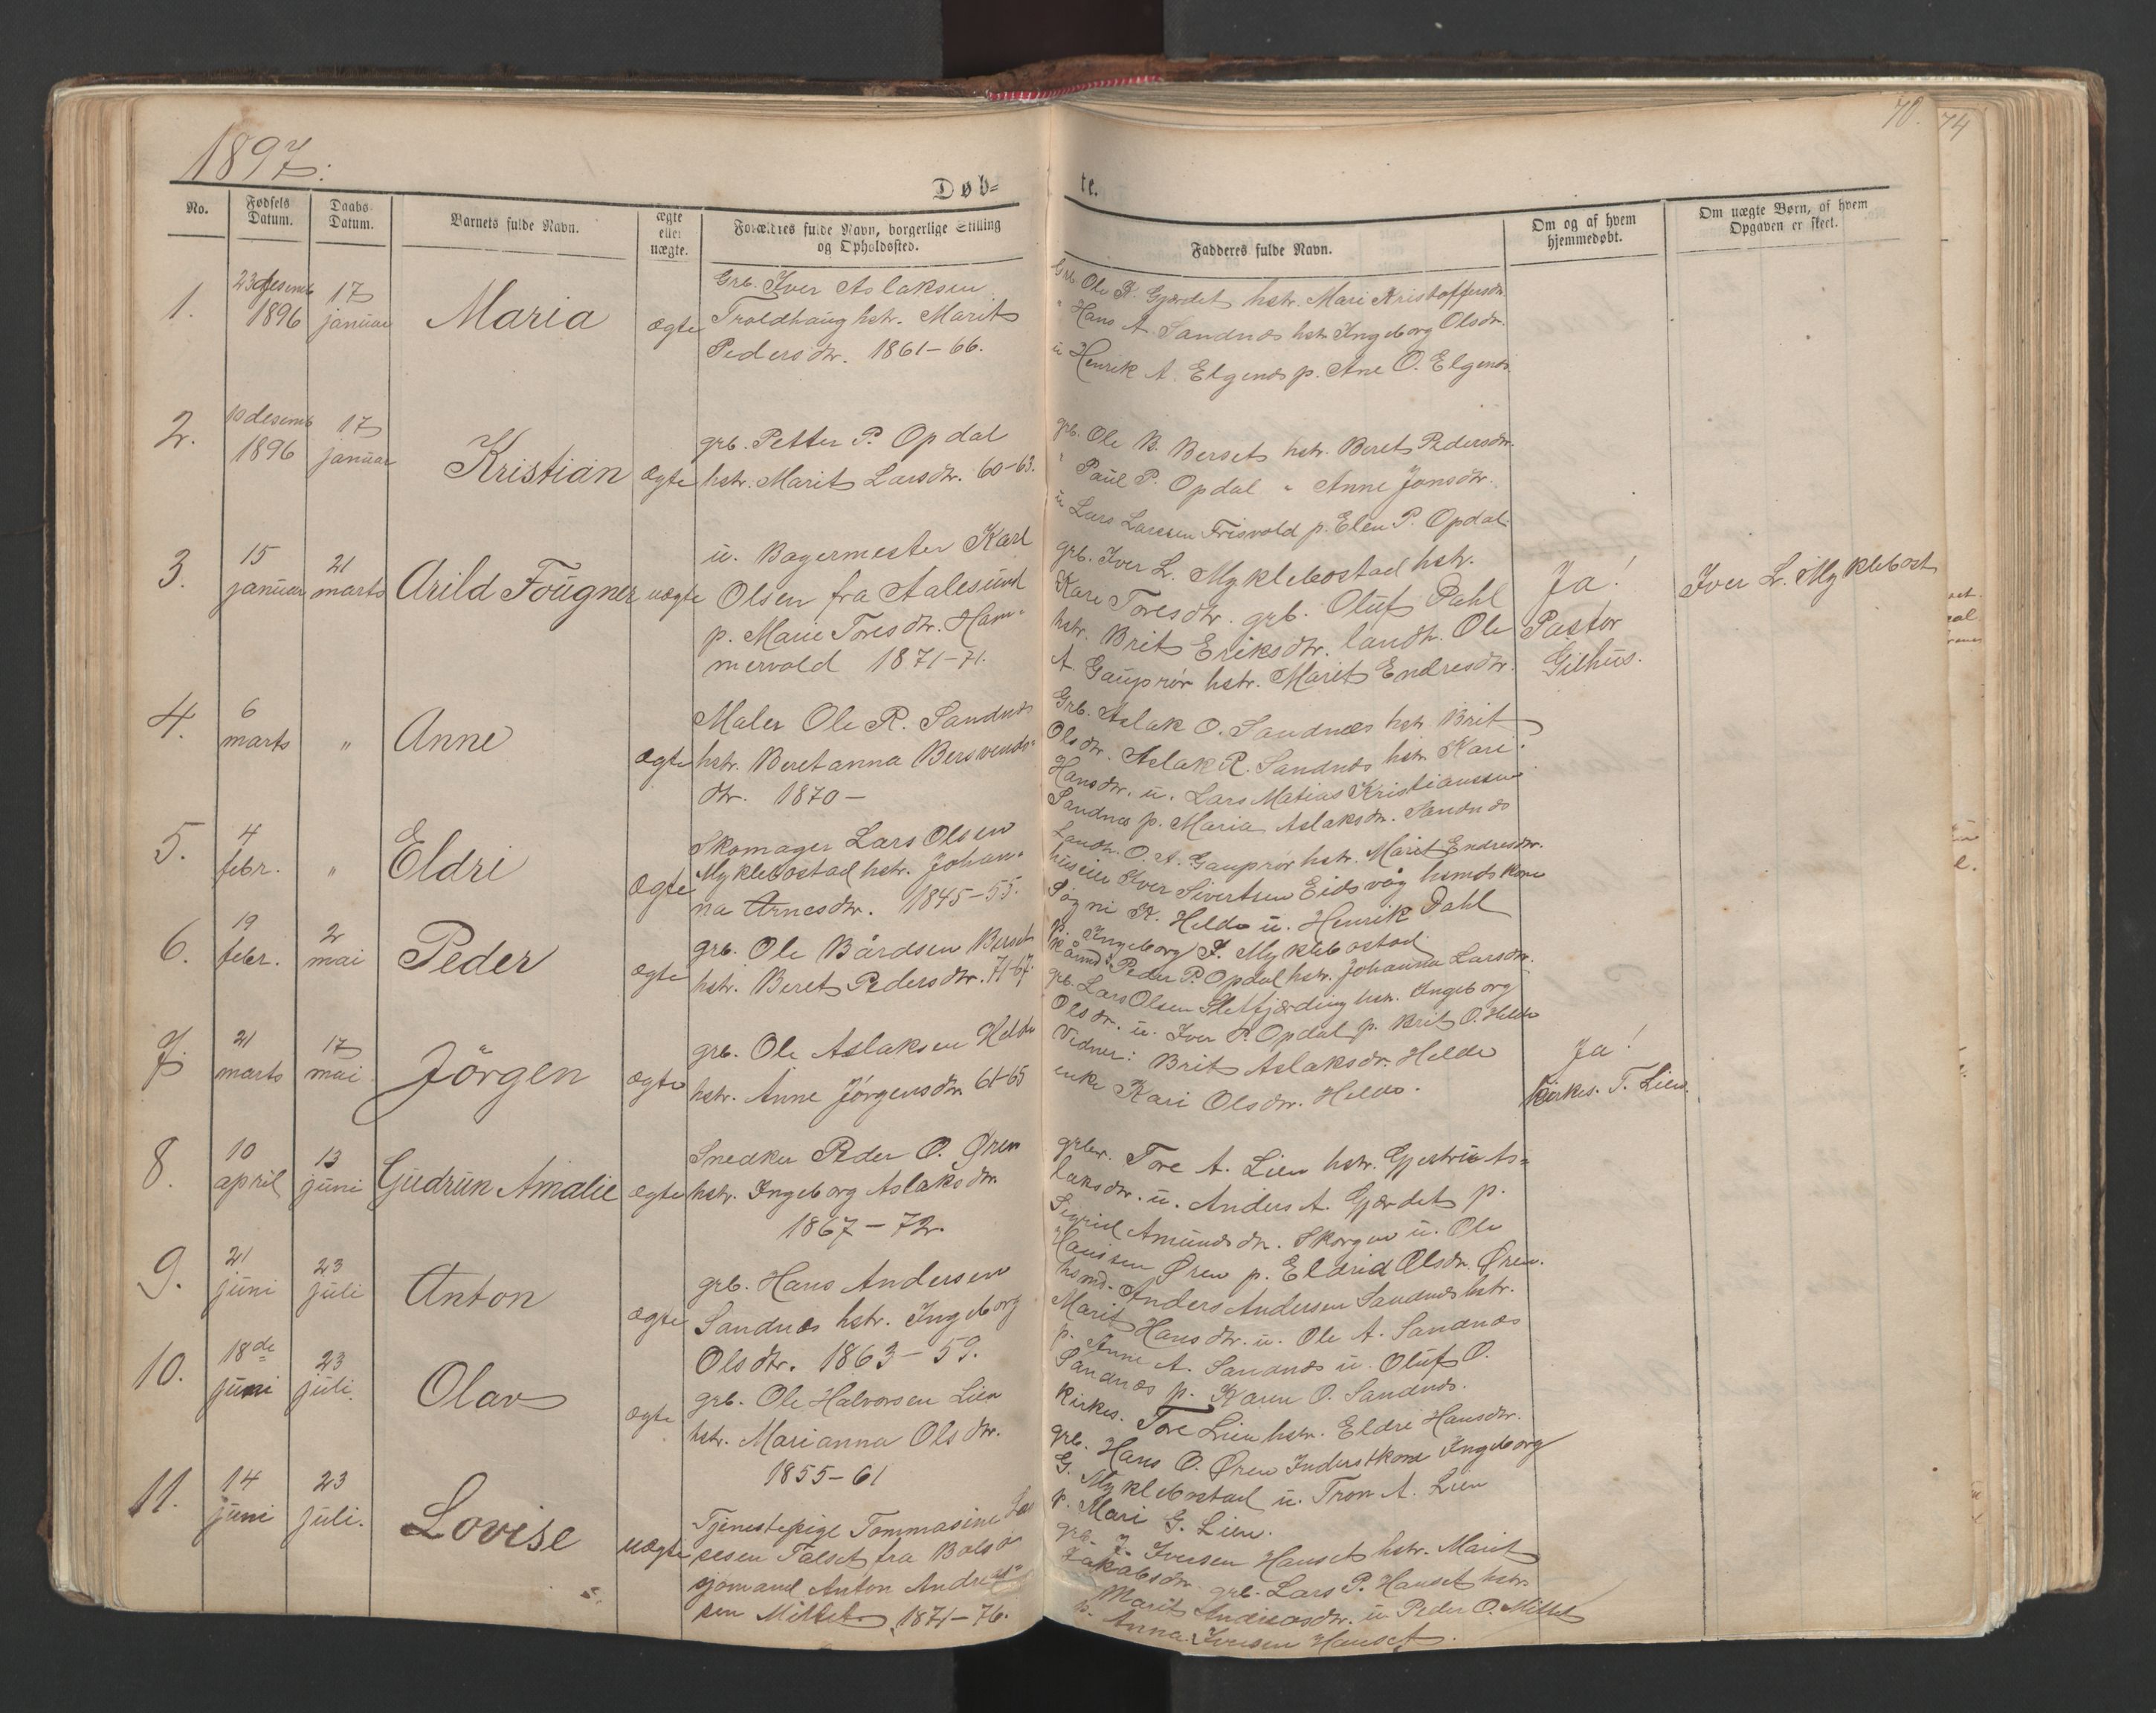 1897.
70.
74
Døb=
te.
No.
Fødsels Datum.
Daabs Datum.
Barnets fulde Navn.
ægte eller uægte.
Forældres fulde Navn, borgerlige Stilling og Opholdssted.
Fadderes fulde Navn.
Om og af hvem hjemmedøbt.
Om uægte Børn, af hvem Opgaven er skeet.
1.
23 desemb 1896
17 januar
Maria
ægte
Grb. Iver Aslaksen
Troldhaug hstr. Marit
Pedersdtr. 1861-66.
Grb Ole K. Gjærdet hstr. Mari Kristoffersdtr.
" Hans A. Sandnæs hstr Ingeborg Olsdtr.
u Henrik A. Elgenæs p. Ane O. Elgenæs
2.
10 desemb 1896
17 januar
Kristian
ægte
grb. Petter P. Opdal
hstr. Marit Larsdtr. 60-63.
grb. Ole B. Berset hstr. Beret Pedersdtr.
" Paul P. Opdal " Anne Jonsdtr.
u Lars Larssen Frisvold p. Elen P. Opdal.
3.
15 januar
21 marts
Arild Fougner
uægte
u. Bagermester Karl
Olsen fra Aalesund
p. Marie Toresdtr. Ham-
mervold 1871-71.
grb. Iver L. Myklebostad hstr.
Kari Toresdtr. grb. Oluf Dahl
hstr. Brit Eriksdtr. landh. Ole
A. Gauprør hstr. Marit Endresdtr.
Ja!
Pastor
Gilhus.
Iver L. Myklebost
4.
6 marts
"
Anne
ægte
Maler Ole R. Sandnæs
hstr. Beretanna Bersvends-
dtr. 1870-
Grb. Aslak O. Sandnæs hstr Brit
Olsdtr. Aslak R. Sandnæs hstr Kari
Hansdtr. u. Lars Matias Kristianssen
Sandnæs p. Maria Aslaksdtr. Sandnæs
5.
4 febr.
"
Eldri
ægte
Skomager Lars Olsen
Myklebostad hstr. Johan-
na Arnesdtr. 1845-55.
Landh. O. A. Gauprør hstr. Marit Endresdtr.
Iver Sivertsen Eidsvåg husmdskone
Søgni K. Helde u. Henrik Dahl
p. Ingeborg I. Myklebostad
6.
19 febr.
2 mai
Peder
ægte
grb. Ole Bårdsen Berset
hstr. Beret Pedersdtr. 71-67.
kårmd. Peder P. Opdal hstr. Johanna Larsdtr.
grb. Lars Olsen Sletfjærding hstr. Ingeborg
Olsdtr. u. Iver P. Opdal p. Brit O. Helde
7.
21 marts
17 mai
Jörgen
ægte
grb. Ole Aslaksen Helde
hstr. Anne Jørgensdtr. 61-65
Vidner: Brit Aslaksdtr. Helde
enke Kari Olsdtr. Helde.
Ja!
kirkes. T. Lien.
8.
10 april
13 juni
Gudrun Amalie
ægte
Snedker Peder O. Øren
hstr. Ingeborg Aslaksdtr.
1867-72.
grbr. Tore A. Lien hstr. Gjertrū As-
laksdtr. u. Anders A. Gjærdet p.
Sigrid Amundsdtr. Skorgen u. Ole
Hanssen Øren p. Eldrid Olsdtr. Øren.
9.
21 juni
23 juli
Anton
ægte
grb. Hans Andersen
Sandnæs hstr. Ingeborg
Olsdtr. 1863-59.
hsmd. Anders Andersen Sandnæs hstr.
Marit Hansdtr. u. Ole A. Sandnæs
p. Anne A. Sandnæs u. Oluf O.
Sandnæs p. Karen O. Sandnæs.
10.
18de juni
23 juli.
Olav
ægte
grb. Ole Halvorsen Lien
hstr. Marianna Olsdtr.
1855-61
Kirkes. Tore Lien hstr. Eldri Hansdtr.
grb. Hans O. Øren Inderstkone Ingeborg
G. Myklebostad u. Tron A. Lien
p. Mari G. Lien.
11.
14 juni
23 juli.
Lovise
uægte
Tjenestepige Tommasine
sesen Talset fra Bolsø
sjømand Anton Andreas-
sen Mittet 1871-76.
grb. J. Iversen Hanset hstr. Marit
Jakobsdtr. grb. Lars P. Hanset hstr
Marit Andreasdtr. u Peder O. Mittet
p. Anna Iversen Hanset.